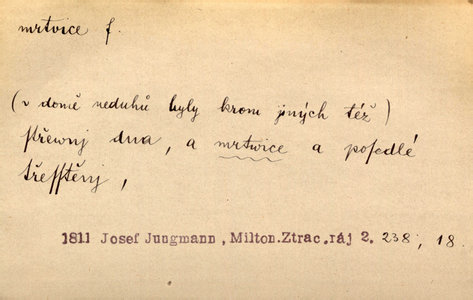 mrtvice f.
(v domě neduhů byly krom jiných též)
střewnj dna, a mrtwice a posedlé
třesstěnj,
1811 Josef Jungmann, Milton.Ztrac.ráj 2. 238, 18.